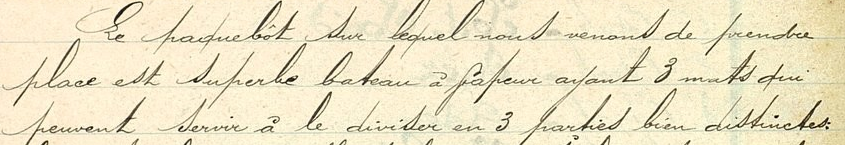 Le paquebôt sur lequel nous venons de prendre
place est superbe bateau à vapeur ayant 3 mats qui
peuvent servir à le diviser en 3 parties bien distinctes: